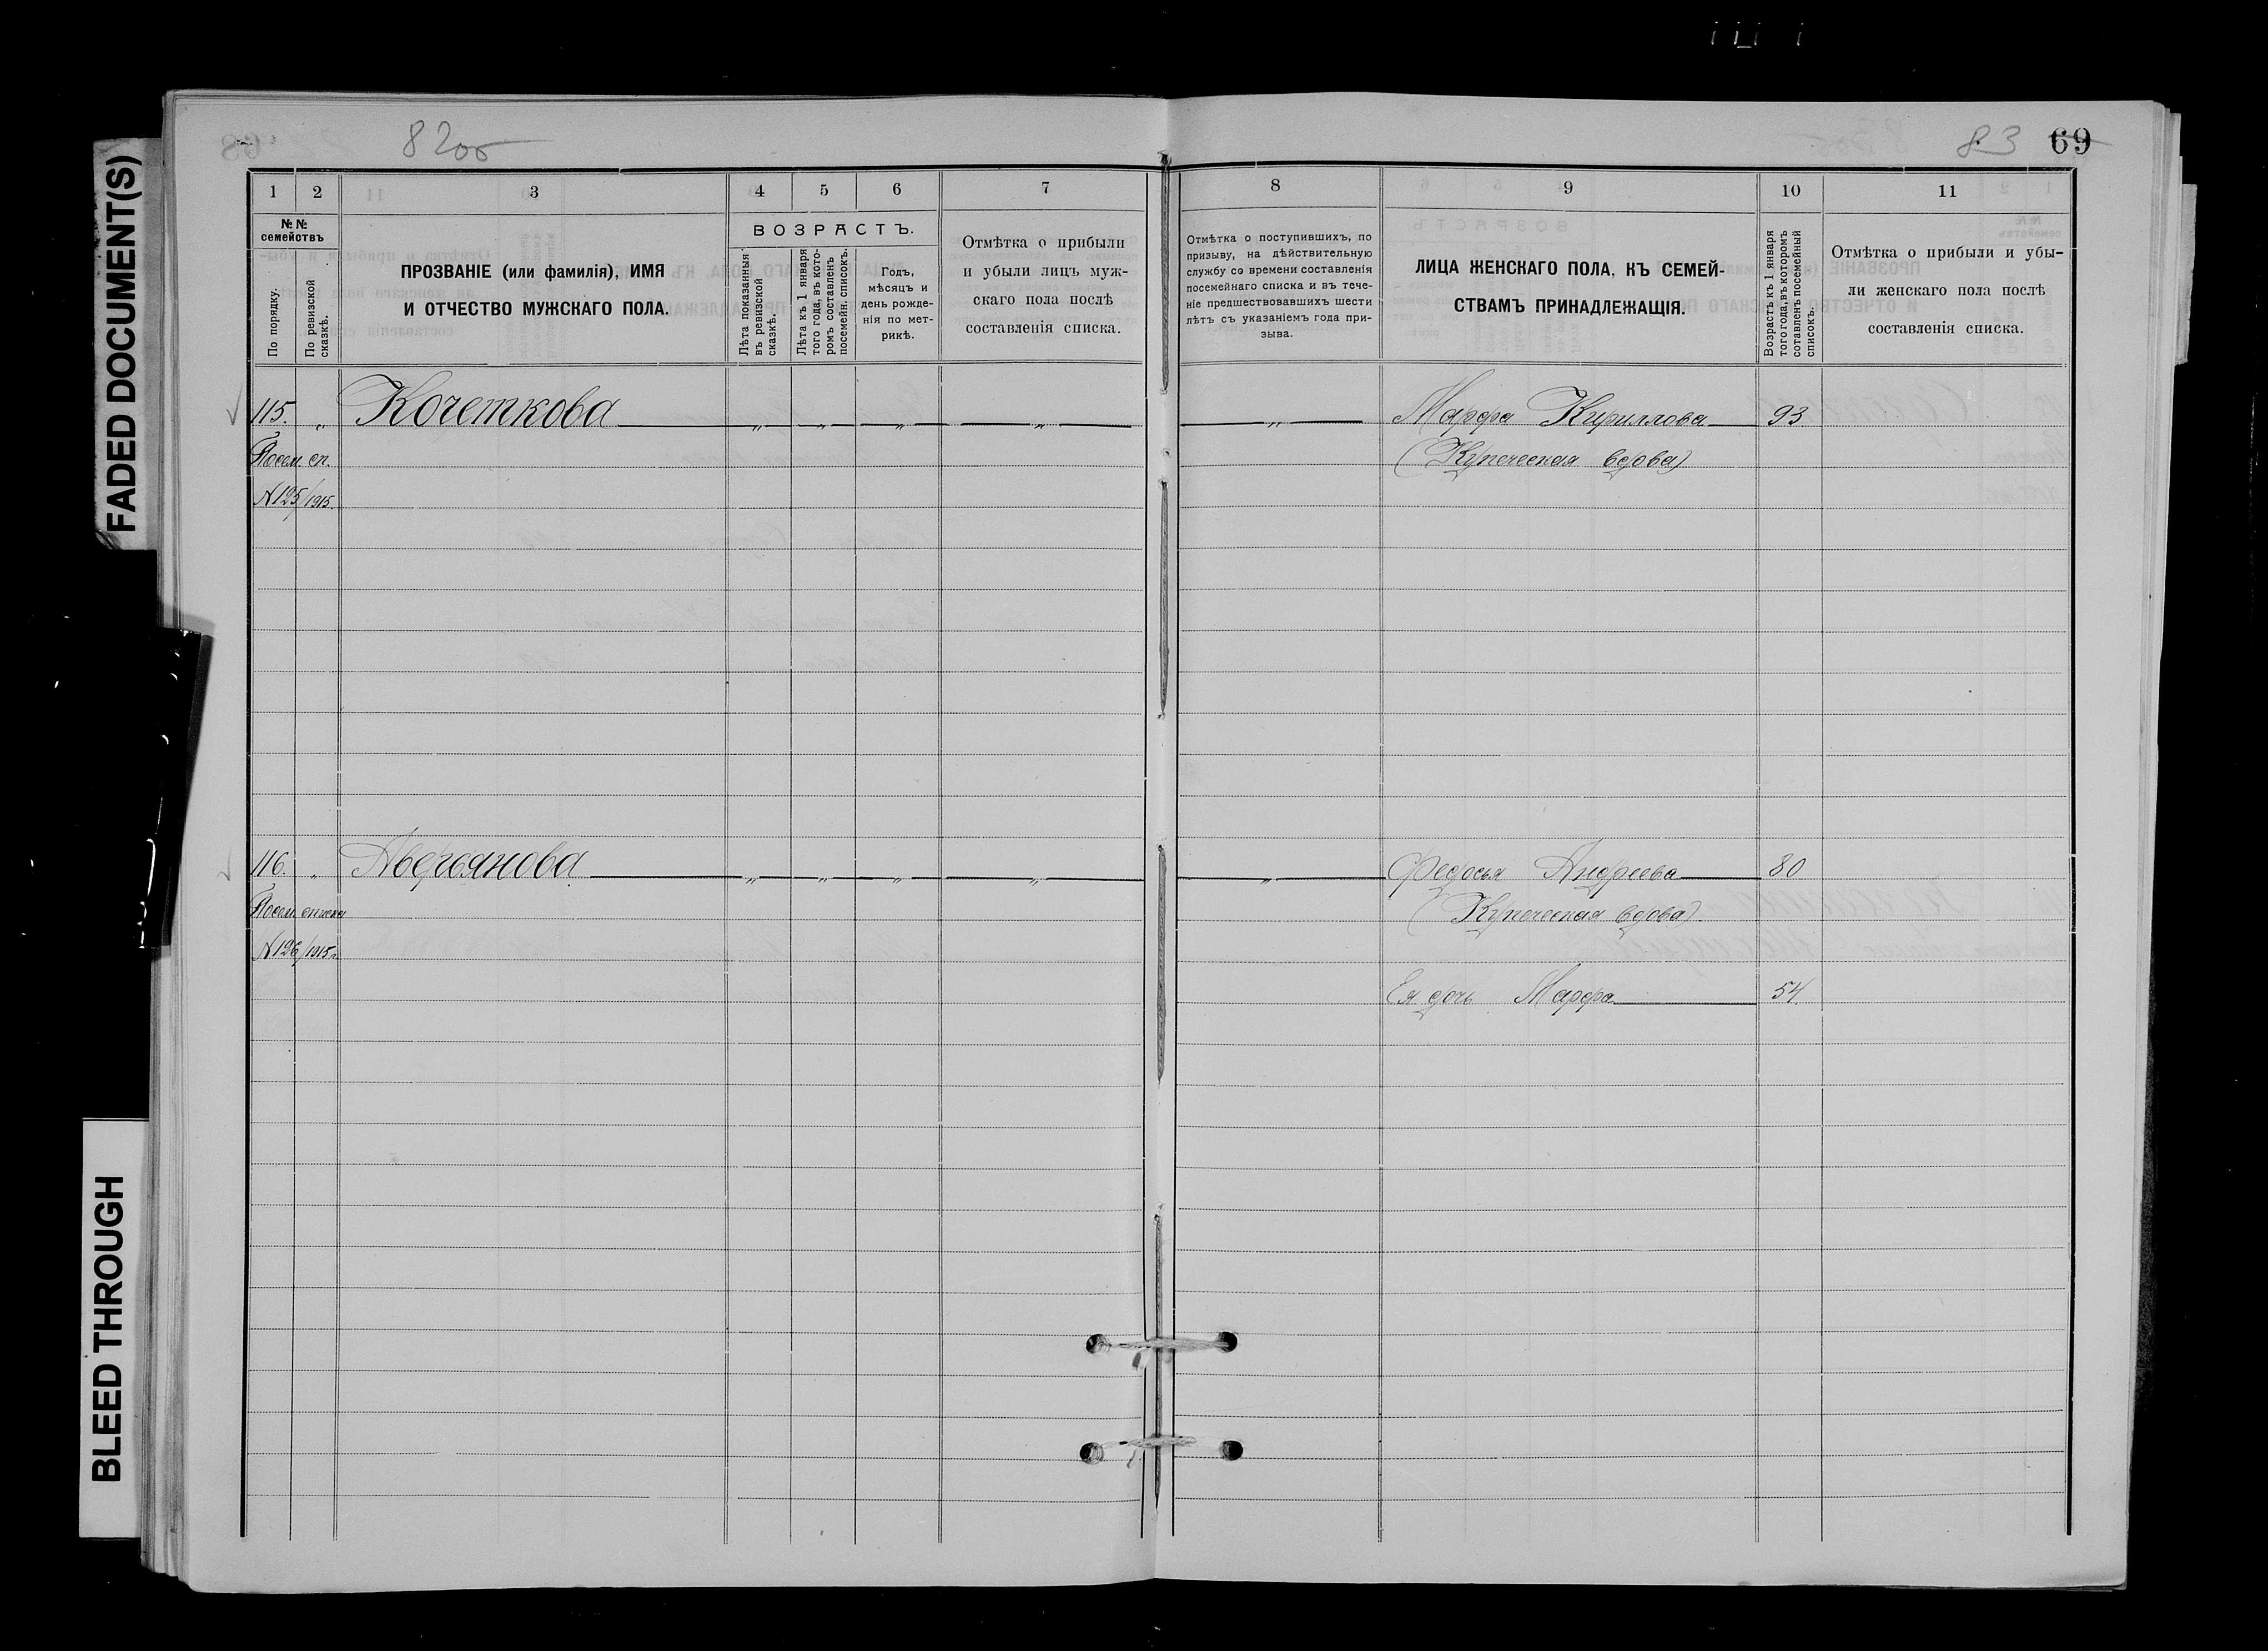 FADED DOCUMENT(S)
BLEED THROUGH
82об
83 69
1 2 3 4 5 6 7
8 9 10 11
№№ семействъ
По порядку.
По ревизской сказкѣ.
ПРОЗВАНІЕ (или фамилія), ИМЯ
И ОТЧЕСТВО МУЖСКАГО ПОЛА.
ВОЗРАСТЪ.
Лѣта показанныя
въ ревизской
сказкѣ.
Лѣта къ 1 января
того года, въ кото-
ромъ составленъ
посемейн. списокъ.
Годъ,
мѣсяцъ и
день рожде-
нія по мет-
рикѣ.
Отмѣтка о прибыли
и убыли лицъ муж-
скаго пола послѣ
составленія списка.
Отмѣтка о поступившихъ, по
призыву, на дѣйствительную
службу со времени составленія
посемейнаго списка и въ тече-
ніе предшествовавшихъ шести
лѣтъ съ указаніемъ года при-
зыва.
ЛИЦА ЖЕНСКАГО ПОЛА, КЪ СЕМЕЙ-
СТВАМЪ ПРИНАДЛЕЖАЩІЯ.
Возрастъ къ 1 января
того года, въ которомъ
сотавленъ посемейный
списокъ.
Отмѣтка о прибыли и убы-
ли женскаго пола послѣ
составленія списка.
115. „ Кочеткова „ „ „ „ „ Марфа Кириллова 93
Посем. сп. (Купеческая вдова)
№125/1915.
116. „ Аверьянова „ „ „ „ „ Федосья Андреева 80
Посем. списка (Купеческая вдова).
№126/1915г.
Ея дочь Марфа 54.